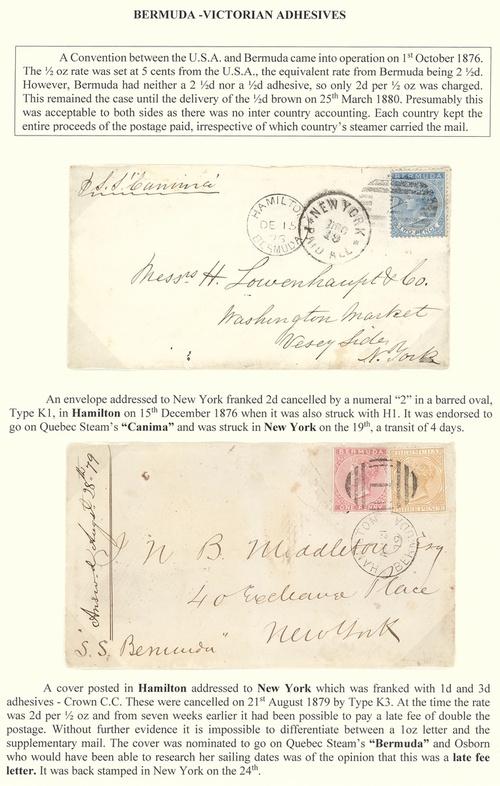 BERMUDA -VICTORIAN ADHESIVES
A Convention between the U.S.A. and Bermuda came into operation on 1st October 1876.
The ½ oz rate was set at 5 cents from the U.S.A., the equivalent rate from Bermuda being 2 ½d.
However, Bermuda had neither a 2 ½d nor a ½d adhesive, so only 2d per ½ oz was charged.
This remained the case until the delivery of the ½d brown on 25th March 1880. Presumably this
was acceptable to both sides as there was no inter country accounting. Each country kept the
entire proceeds of the postage paid, irrespective of which country's steamer carried the mail.
p. S.S. "Canima"
HAMILTON
DE 15
BERMUDA
NEW YORK
DEC
19
PAID ALL
BERMUDA
TWO PENCE
Messrs H. Lowenhaupt & Co.
Washington Market
Vesey Side
N. York
An envelope addressed to New York franked 2d cancelled by a numeral "2" in a barred oval,
Type K1, in Hamilton on 15th December 1876 when it was also struck with H1. It was endorsed to
go on Quebec Steam's "Canima" and was struck in New York on the 19th, a transit of 4 days.
BERMUDA
ONE PENNY
1
HAMILTON
BERMUDA
Answd Augst 28th 79
J N B Middleton Esq
40 Exchange Place
New York
"S. S. Bermuda"
A cover posted in Hamilton addressed to New York which was franked with 1d and 3d
adhesives - Crown C.C. These were cancelled on 21st August 1879 by Type K3. At the time the rate
was 2d per ½ oz and from seven weeks earlier it had been possible to pay a late fee of double the
postage. Without further evidence it is impossible to differentiate between a 1oz letter and the
supplementary mail. The cover was nominated to go on Quebec Steam's "Bermuda" and Osborn
who would have been able to research her sailing dates was of the opinion that this was a late fee
letter. It was back stamped in New York on the 24th.